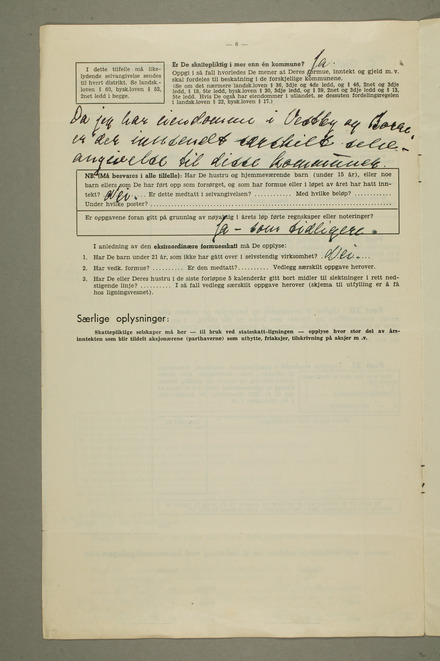 — 6 —
I dette tilfelle må lik-
lydende selvangivelse sendes
til hvert distrikt. Se landsk.-
loven § 60, bysk.loven § 52,
2net ledd i begge.
Er De skattepliktig i mer enn én kommune? Ja.
Oppgi i så fall hvorledes De mener at Deres formue, inntekt og gjeld m. v.
skal fordeles til beskatning i de forskjellige kommunene.
(Se om det nærmere landsk.loven § 36, 3dje og 4de ledd, og § 46, 2net og 3dje
ledd, § 18, 5te ledd, bysk.loven § 30, 3dje ledd, og § 39, 2net og 3dje ledd og § 13,
5te ledd. Hvis De også har eiendommer i utlandet, se dessuten fordelingsregelen
i landsk.loven § 22, bysk.loven § 17.)
Da jeg har eiendomme i Vestby og
er der innsendt særskilt selv-
angivelse til disse kommuner.
NB. (Må besvares i alle tilfelle): Har De hustru og hjemmeværende barn (under 15 år), eller noe
barn ellers som De har ført opp som forsørget, og som har formue eller i løpet av året har hatt inn-
tekt? Nei. Er dette medtatt i selvangivelsen? .......... Med hvilke beløp? ............
Under hvilke poster? ............
Er oppgavene foran gitt på grunnlag av nøyaktig i årets løp førte regnskaper eller noteringer?
Ja – som tidligere.
I anledning av den ekstraordinære formuesskatt må De opplyse:
1. Har De barn under 21 år, som ikke har gått over i selvstendig virksomhet? Nei.
2. Har vedk. formue? .......... Er den medtatt?.......... Vedlegg særskilt oppgave herover.
3. Har De eller Deres hustru i de siste forløpne 5 kalenderår gitt bort midler til slektninger i rett ned-
stigende linje? .......... I så fall vedlegg særskilt oppgave herover (skjema til utfylling er å få
hos ligningsvesnet).
Særlige oplysninger:
Skattepliktige selskaper må her — til bruk ved statsskatt-ligningen — opplyse hvor stor del av års-
inntekten som blir tildelt aksjonærene (parthaverne) som utbytte, friaksjer, tilskrivning på aksjer m .v.